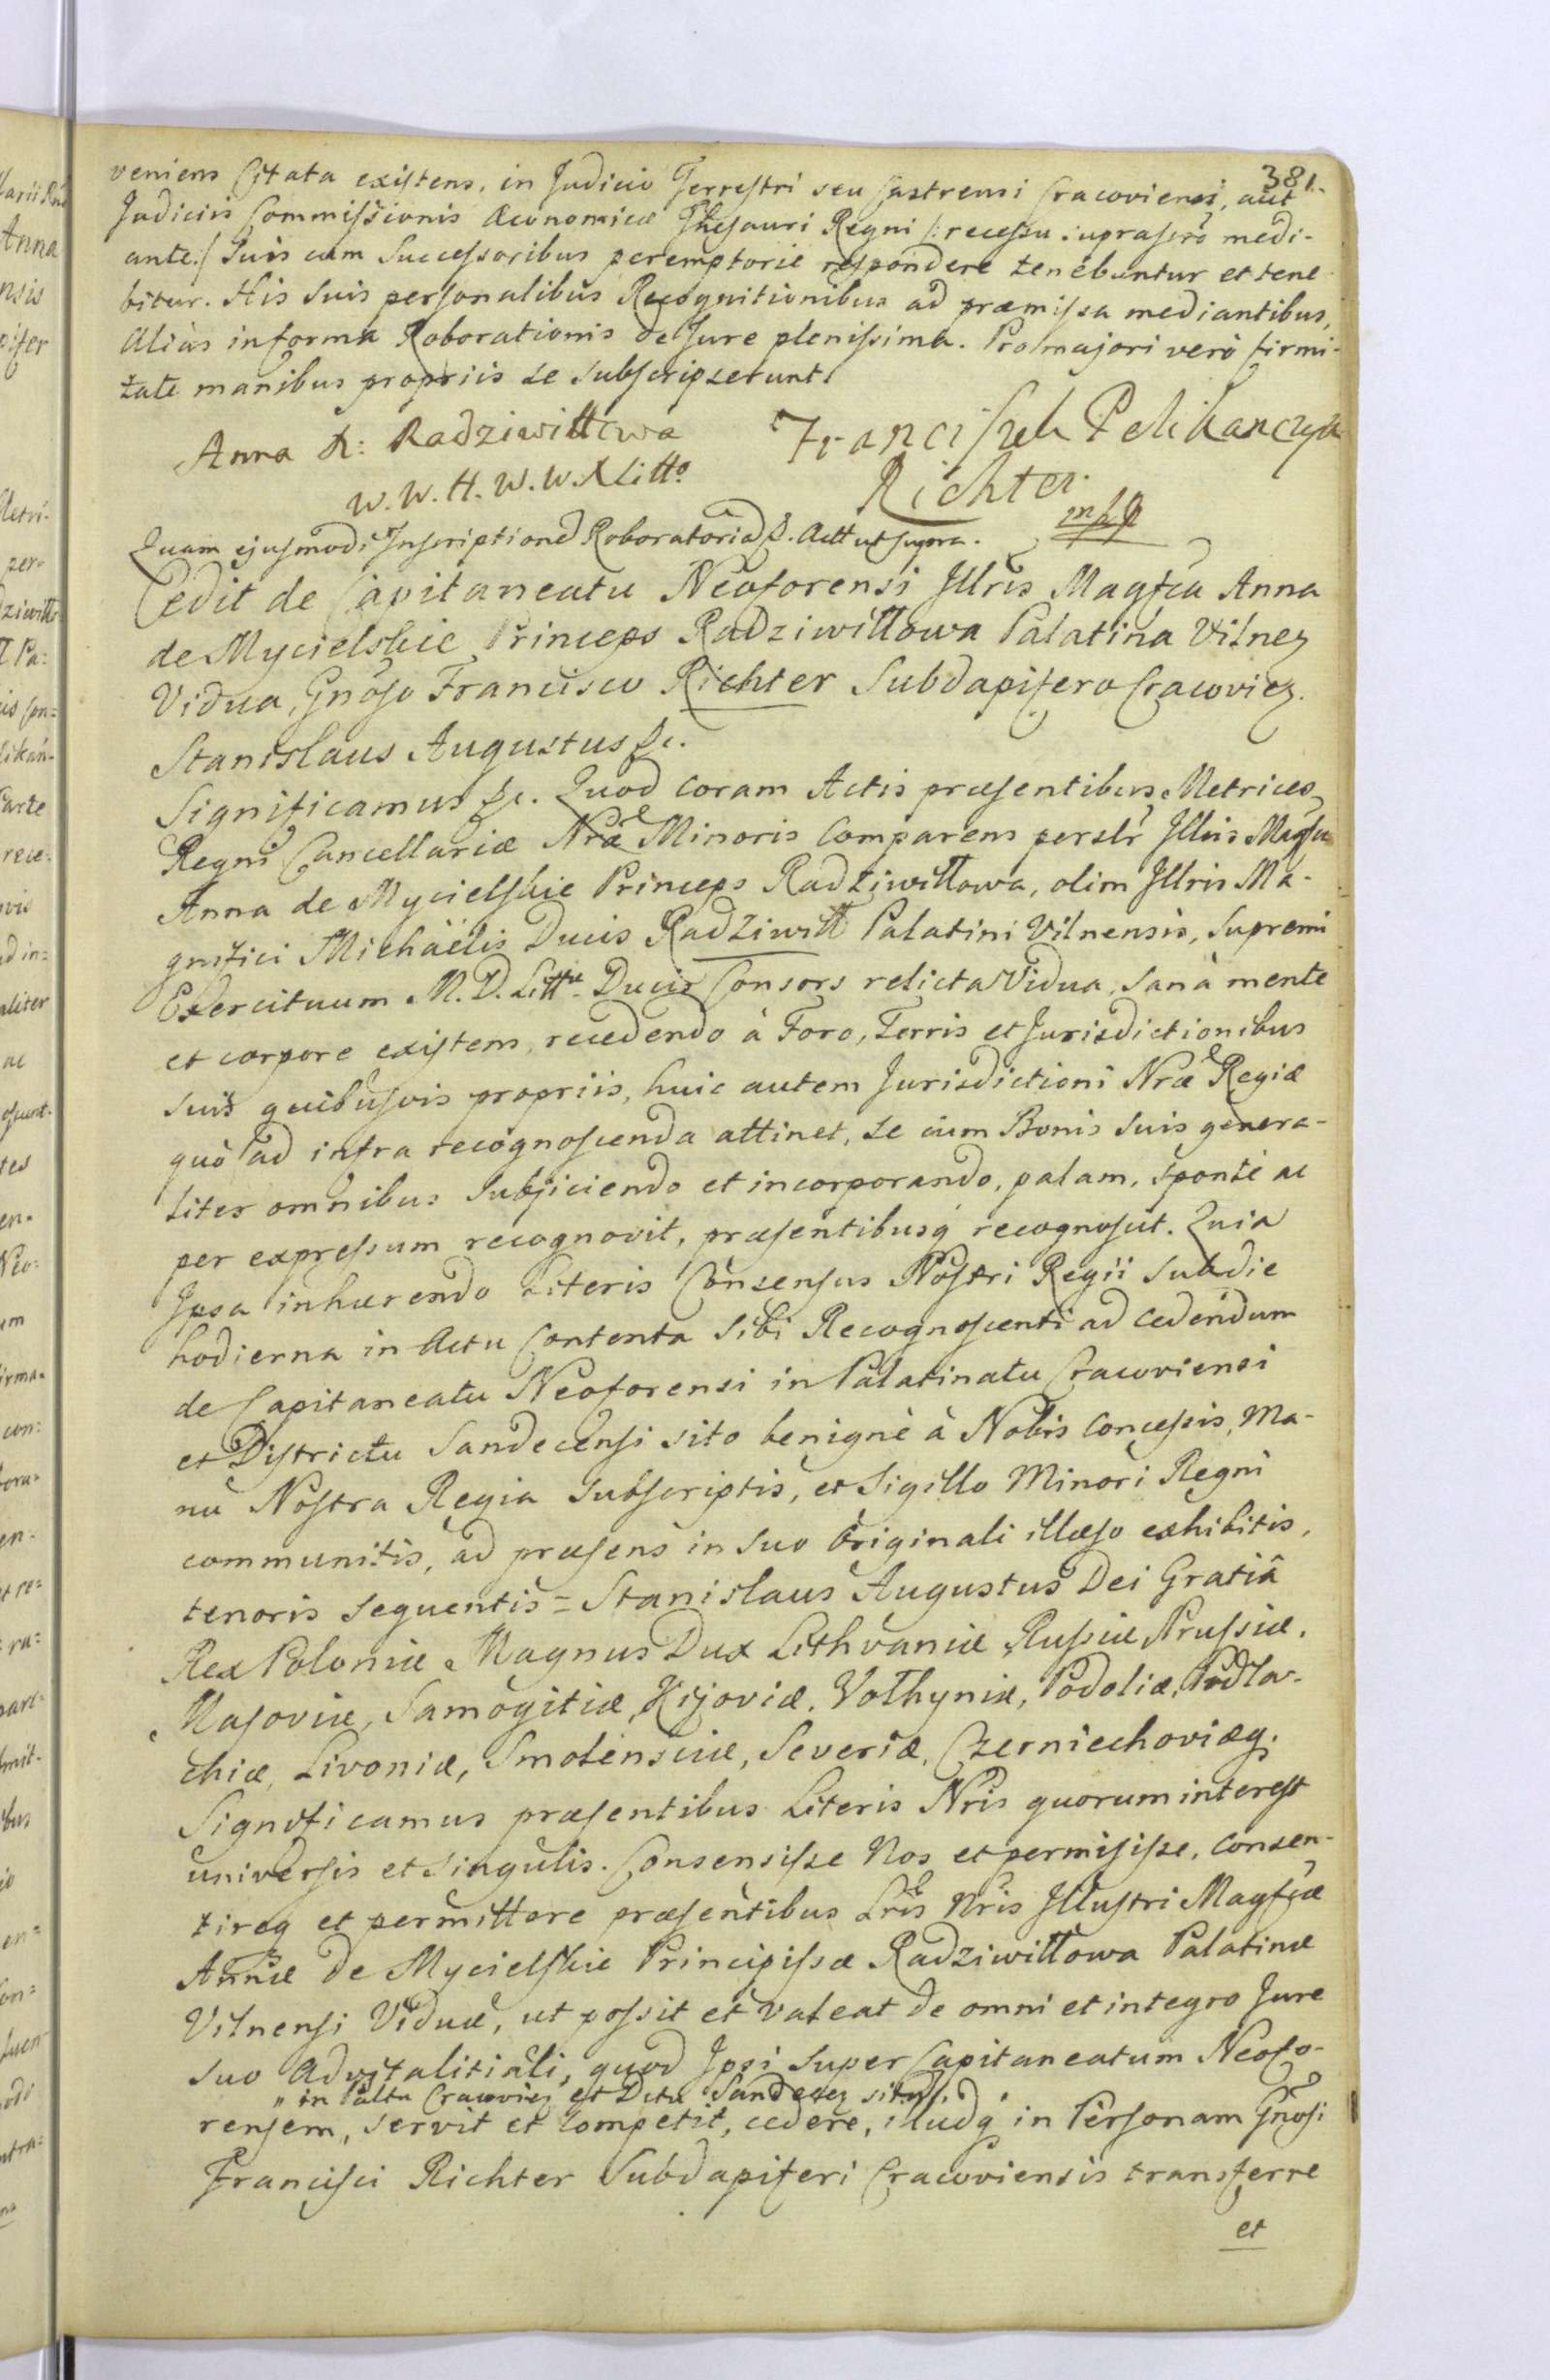 381.
veniens Citata existens, in Judicio Terrestri seu Castrensi Cracoviensi, aut
Judiciis Commissionis Œconomicæ Thesauri Regni /: recessu suprascrō medi-
ante:/ suis cum Successoribus peremptorie respondere tenebuntur et tene
bitur. His suis personalibus Recognitionibus ad præmissa mediantibus,
Alias in forma Roborationis de Jure plenissima. Pro majori verò firmi-
tate manibus propriis se subscripserunt.
Anna X: Radziwiłłowa
W. W. H. W. W. X Litto
Franciszek Pelikanczyk
Richter
mp
Quam ejusmodi Inscriptionē Roboratoriā &. Actt ut supra.
Cedit de Capitaneatu Neoforensi Jllris Magfca Anna
de Mycielskie Princeps Radziwiłłowa Palatina Vilneȝ
Vidua, Gnōso Francisco Richter Subdapifero Cracovieȝ.
Stanislaus Augustus &c.
Significamus &c. Quod coram Actis præsentibus, Metrices
Regni Cancellariæ Nræ Minoris Comparens persłr Jllris Magfca
Anna de Mycielskie Princeps Radziwiłłowa, olim Jllris Ma-
gnifici Michäelis Ducis Radziwiłł Palatini Vilnensis, Supremi
Exercituum M. D. Littæ Ducis Consors relicta Vidua, sanà mente
et corpore existens, recedendo à Foro, Terris et Jurisdictionibus
suis quibusvis propriis, huic autem Jurisdictioni Nræ Regiæ
quò ad infra recognoscenda attinet, se cum Bonis suis genera-
liter omnibus subjiciendo et incorporando, palam, sponte ac
per expressum recognovit, præsentibusq recognoscit. Quia
Ipsa inhærendo Literis Consensus Nostri Regii sub die
hodierna in Actu Contenta sibi Recognoscenti ad cedendum
de Capitaneatu Neoforensi in Palatinatu Cracoviensi
et Districtu Sandecensi sito benignè à Nobis concessis, Ma-
nu Nostra Regia subscriptis, et Sigillo Minori Regni
communitis, ad præsens in suo Originali illæso exhibitis,
tenoris sequentis = Stanislaus Augustus Dei Gratiâ
Rex Poloniæ Magnus Dux Lithvaniæ, Russiæ Prussiæ,
Masoviæ, Samogitiæ, Kijoviæ, Volhyniæ, Podoliæ, Podla-
chiæ, Livoniæ, Smolensciæ, Severiæ, Czerniechoviæq.
Significamus præsentibus Literis Nris quorum interest
universis et singulis. Consensisse Nos et permisisse, consen-
tireq et permittere præsentibus Lris Nris Jllustri Magfcæ
Annæ de Mycielskie Principissæ Radziwiłłowa Palatinæ
Vilnensi Viduæ, ut possit et valeat de omni et integro Jure
suo Advitalitiali, quod Ipsi super Capitaneatum Neofo-
" in Palttu Cracovieȝ et Dctu Sandeceȝ situm.
rensem, servit et competit, cedere, illudq in Personam Gnōsi
Francisci Richter Subdapiferi Cracoviensis transferre
et